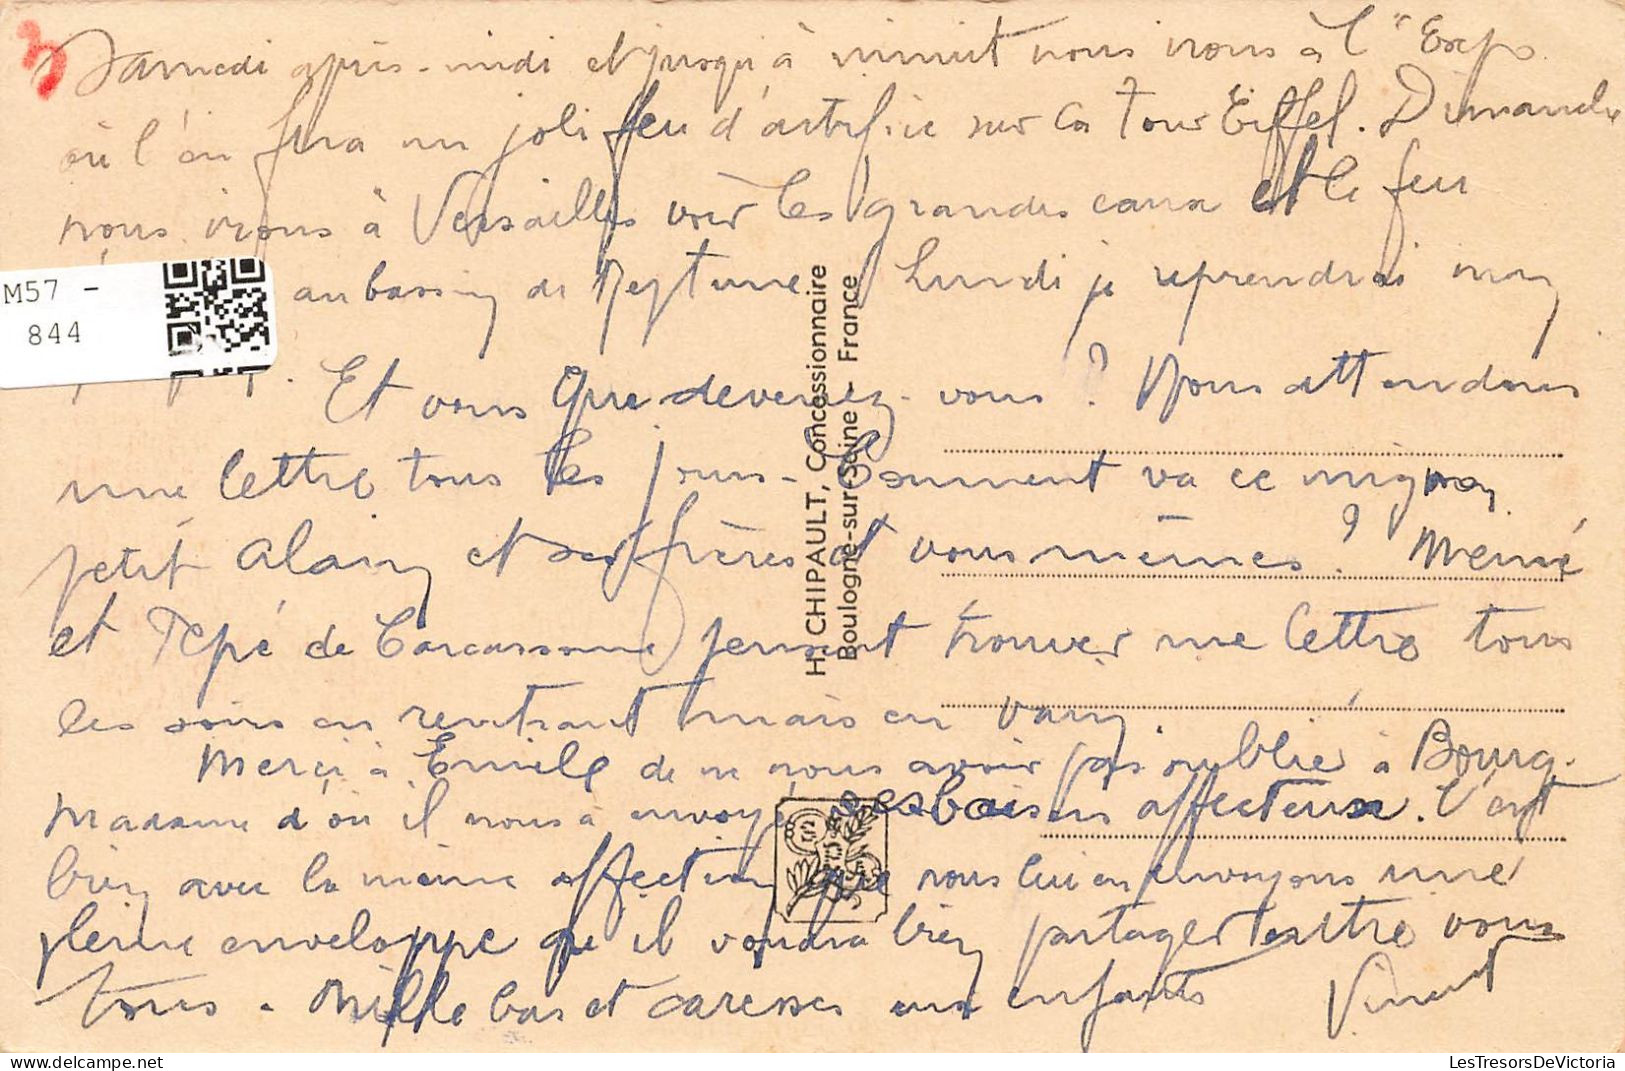 Samedi après-midi et jusqu'à minuit nous irons à l'Expo
où l'on fera un joli feu d'artifice sur la Tour Eiffel. Dimanche
nous irons à Versailles voir les grandes eaux et le feu
au bassin de Neptune Lundi je reprendrai mon
M57 -
844
Et vous que devenez-vous ? Nous attendons
une lettre tous les jours. Comment va ce mignon
petit Alain et ses frères et vous mêmes ? Mémé
et Pépé de Carcassonne pensent trouver une lettre tous
les soirs en rentrant mais en vain.
Merci à Emile de ne nous avoir pas oublié à Bourg-
Madame d'où il nous a envoyé ses baisers affectueux. C'est
bien avec la même affection que nous lui en envoyons une
pleine enveloppe qu'il voudra bien partager entre vous
tous - Mille bas et caresses aux enfants Vincent
H. CHIPAULT, Concessionnaire
Boulogne-sur-Seine - France
LesTresorsDeVictoria